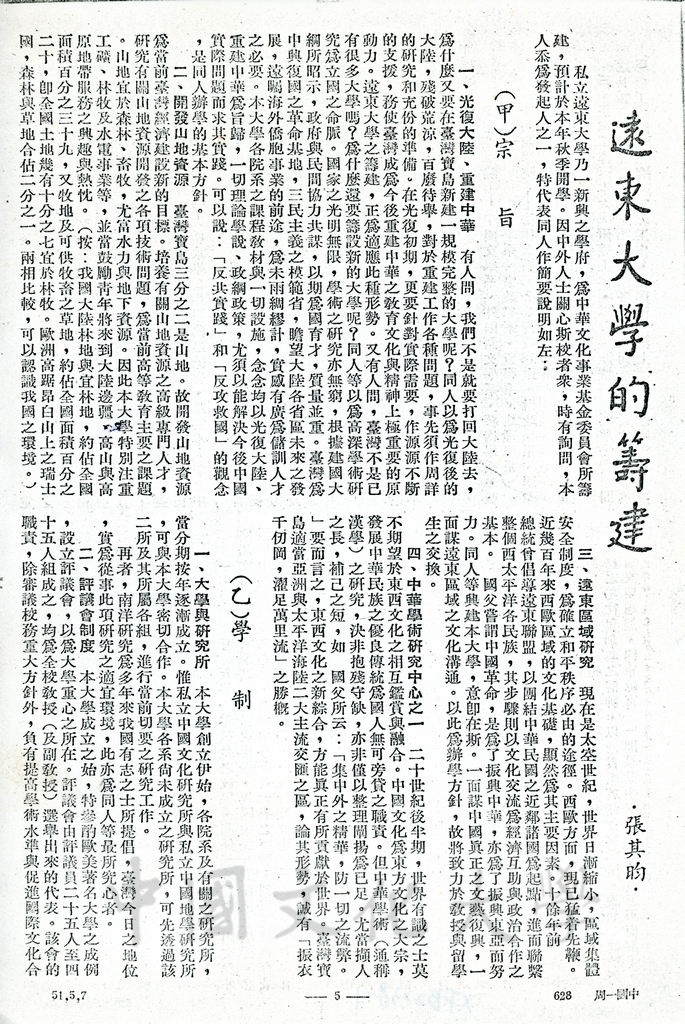 遠東大學的籌建
．張其昀．
私立遠東大學乃一新興之學府，爲中華文化事業基金委員會所籌
建，預計於本年秋季開學。因中外人士關心斯校者衆，時有詢問，本
人忝爲發起人之一，特代表同人作簡要說明如左：
（甲）宗旨
一、光復大陸、重建中華　有人問，我們不是就要打回大陸去，
爲什麼又要在臺灣寶島新建一規模完整的大學呢？同人以爲光復後的
大陸，殘破荒涼，百廢待舉，對於重建工作各種問題，事先須作周詳
的研究和充份的準備。在光復初期，更要針對實際需要，作源源不斷
的支援，務使臺灣成爲今後重建中華之敎育文化與精神上極重要的原
動力。遠東大學之籌建，正爲適應此種形勢。又有人問，臺灣不是已
有很多大學嗎？爲什麼還要籌設新的大學呢？同人等以爲高深學術研
究爲立國之命脈。國家之光明無限，學術之研究亦無窮，根據建國大
綱所昭示，政府與民間協力共謀，以期爲國育才，質量並重。臺灣爲
中興復國之革命基地，三民主義之模範省，瞻望大陸各省區未來之發
展，遠矚海外僑胞事業的前途，爲未雨綢繆計，實感有廣爲儲訓人才
之必要。本大學各院系之課程敎材與一切設施，念念均以光復大陸、
重建中華爲旨歸，一切理論學說、政綱政策，尤須以能解決今後中國
實際問題而求其實踐。可以說：「反共實踐」和「反攻救國」的觀念
，是同人辦學的基本方針。
二、開發山地資源　臺灣寶島三分之二是山地。故開發山地資源
爲當前臺灣經濟建設新的目標。培養有關山地資源之高級專門人才，
研究有關山地資源開發之各項技術問題，爲當前高等敎育主要之課題
。山地宜於森林、畜牧，尤富水力與地下資源。因此本大學特別注重
工礦、林牧及水電事業等，並當鼓勵青年將來到大陸邊疆、高山與高
原地帶服務之興趣與熱忱。（按：我國大陸林地與宜林地，約佔全國
面積百分之三十九，又牧地及可供牧畜之草地，約佔全國面積百分之
二十，卽全國土地幾有十分之七宜於林牧。歐洲高踞昂白山上之瑞士
國，森林與草地合佔二分之一。兩相比較，可以認識我國之環境。）
三、遠東區域研究　現在是太空世紀，世界日漸縮小，區域集體
安全制度，爲確立和平秩序必由的途徑。西歐方面，現已猛着先鞭。
近幾百年來西歐區域的文化基礎，顯然爲其主要因素。十餘年前
總統曾倡導遠東聯盟，以團結中華民國之近鄰諸國爲起點，進而聯繫
整個西太平洋各民族，其步驟則以文化交流爲經濟互助與政治合作之
基本。　國父嘗謂中國革命，是爲了振興中華，亦爲了振興東亞而努
力。同人等興建本大學，意卽在斯。一面謀中國眞正之文藝復興，一
面謀遠東區域之文化溝通。以此爲辦學方針，故將致力於敎授與留學
生之交換。
四、中華學術研究中心之一　二十世紀後半期，世界有識之士莫
不期望於東西文化之相互鑑賞與融合。中國文化爲東方文化之大宗，
發展中華民族之優良傳統爲國人無可旁貸之職責。但中華學術（通稱
漢學）之研究，決非抱殘守缺，亦非僅以整理闡揚爲已足，尤當擷人
之長，補己之短，如　國父所云：「集中外之精華，防一切之流弊。
」要而言之，東西文化之新綜合，方能眞正有所貢獻於世界。臺灣寶
島適當亞洲與太平洋海陸二大主流交匯之區，論其形勢，誠有「振衣
千仞岡，濯足萬里流」之勝槪。
（乙）學制
一、大學與研究所　本大學創立伊始，各院系及有關之研究所，
當分期按年逐漸成立。惟私立中國文化研究所與私立中國地學研究所
，可與本大學密切合作。本大學各系尙未成立之研究所，可先透過該
二所及其所屬各組，進行當前切要之研究工作。
再者，南洋研究爲多年來我國有志之士所提倡，臺灣今日之地位
，實爲從事此項研究之適宜環境，此亦爲同人等最所究心者。
二、評議會制度　本大學成立之始，特參酌歐美著名大學之成例
，設立評議會，以爲大學重心之所在。評議會由評議員二十五人至四
十五人組成之，均爲全校敎授（及副敎授）選舉出來的代表。該會的
職責，除審議校務重大方針外，負有提高學術水準與促進國際文化合
51,5,7
— 5 —
628
中國一周